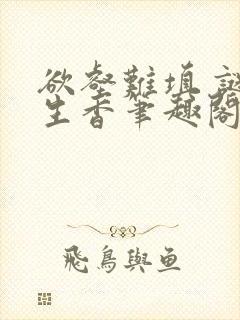 欲壑難填
生香筆趣閣
飛鳥與魚